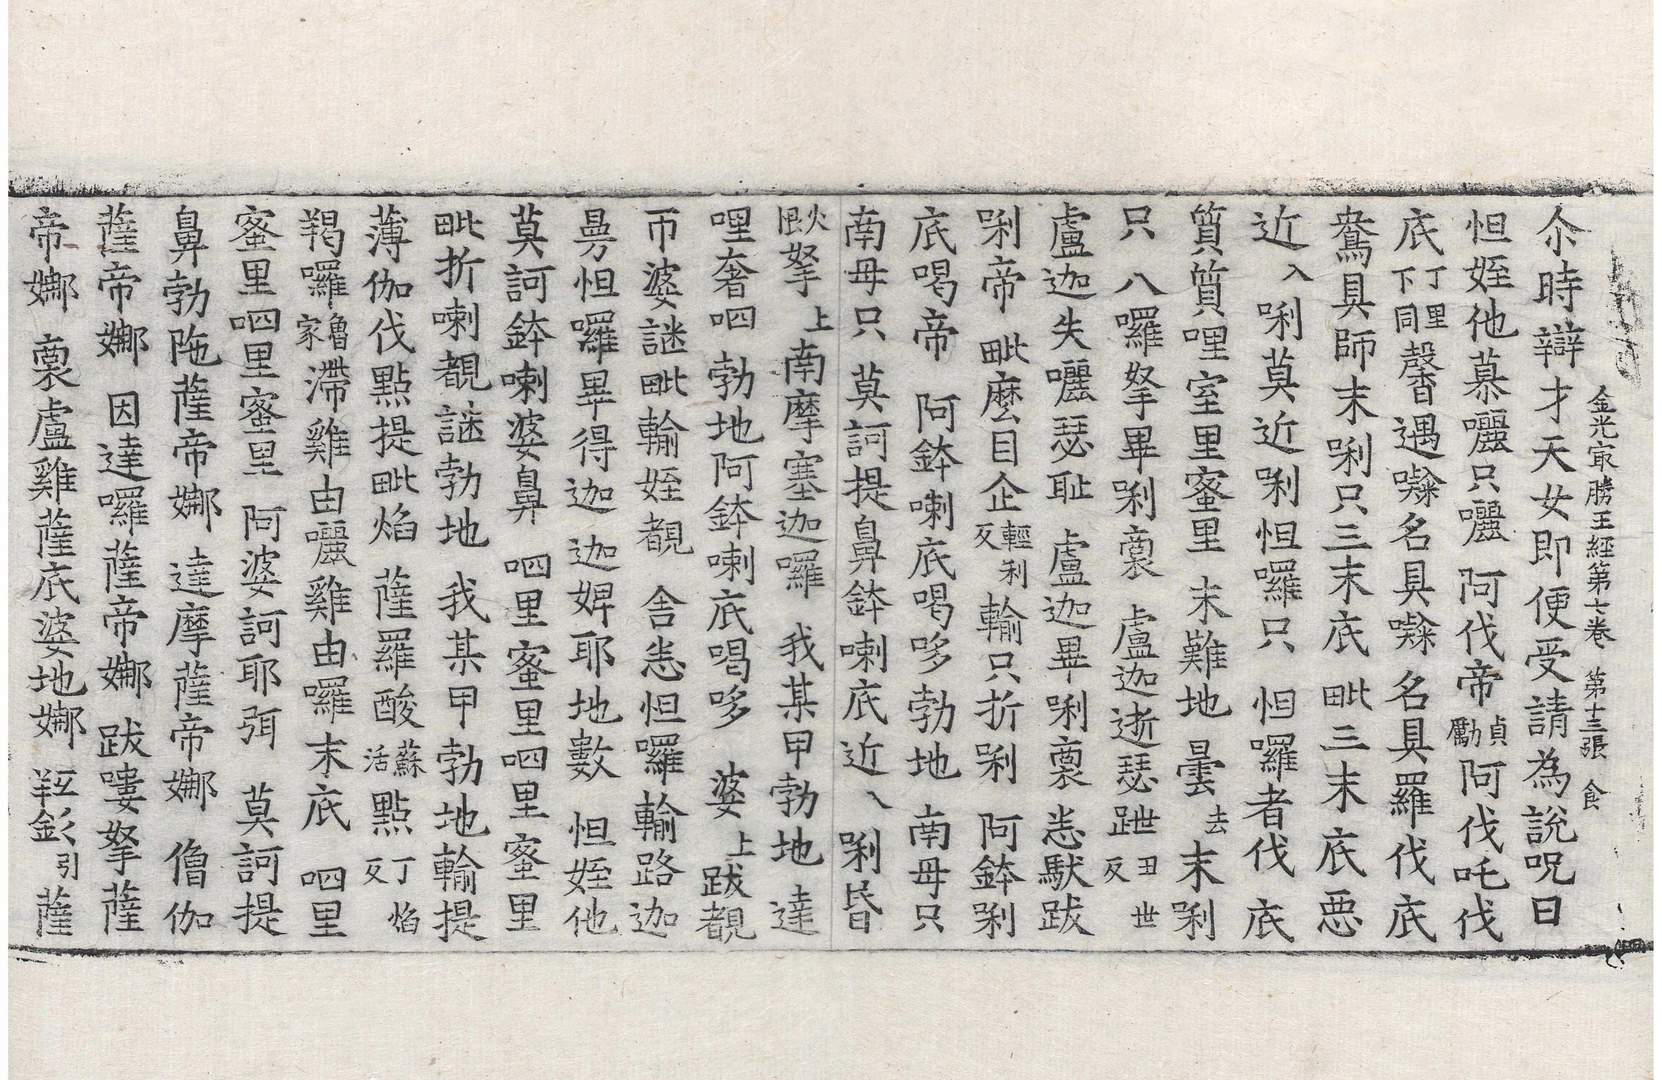 金光㝡勝王經第七卷 第十三張 食
尒時辯才天女即便受請為說呪曰
怛姪他慕囇只囇 阿伐帝貞勵阿伐吒伐
底丁里下同馨遇㗚名具㗚 名具羅伐底
鴦具師末唎只三末底 毗三末底惡
近入唎莫近唎怛囉只 怛囉者伐底
質質哩室里蜜里 末難地 曇去末唎
只 八囉拏畢唎裒 盧迦逝瑟跇丑世反
盧迦失囇瑟恥 盧迦畢唎裒 悉馱跋
唎帝 毗麼目企輕利反輸只折唎 阿鉢唎
底喝帝 阿鉢喇底喝哆勃地 南毋只
南毋只 莫訶提鼻鉢喇底近入唎昏
火恨拏上南摩塞迦囉 我某甲勃地 達
哩奢呬 勃地阿鉢喇底喝哆 婆上跋覩
帀婆謎毗輸姪覩 舍悉怛囉輸路迦
曼怛囉畢得迦迦婢耶地數 怛姪他
莫訶鉢喇婆鼻 呬里蜜里呬里蜜里
毗折喇覩謎勃地 我某甲勃地輸提
薄伽伐點提毗焰 薩羅酸蘇活點丁焰反
羯囉魯家滯雞由囇雞由囉末底 呬里
蜜里呬里蜜里 阿婆訶耶弭 莫訶提
鼻勃陁薩帝娜 達摩薩帝娜 僧伽
薩帝娜 因達囉薩帝娜 跋嘍拏薩
帝娜 裒盧雞薩底婆地娜 羝釤引薩